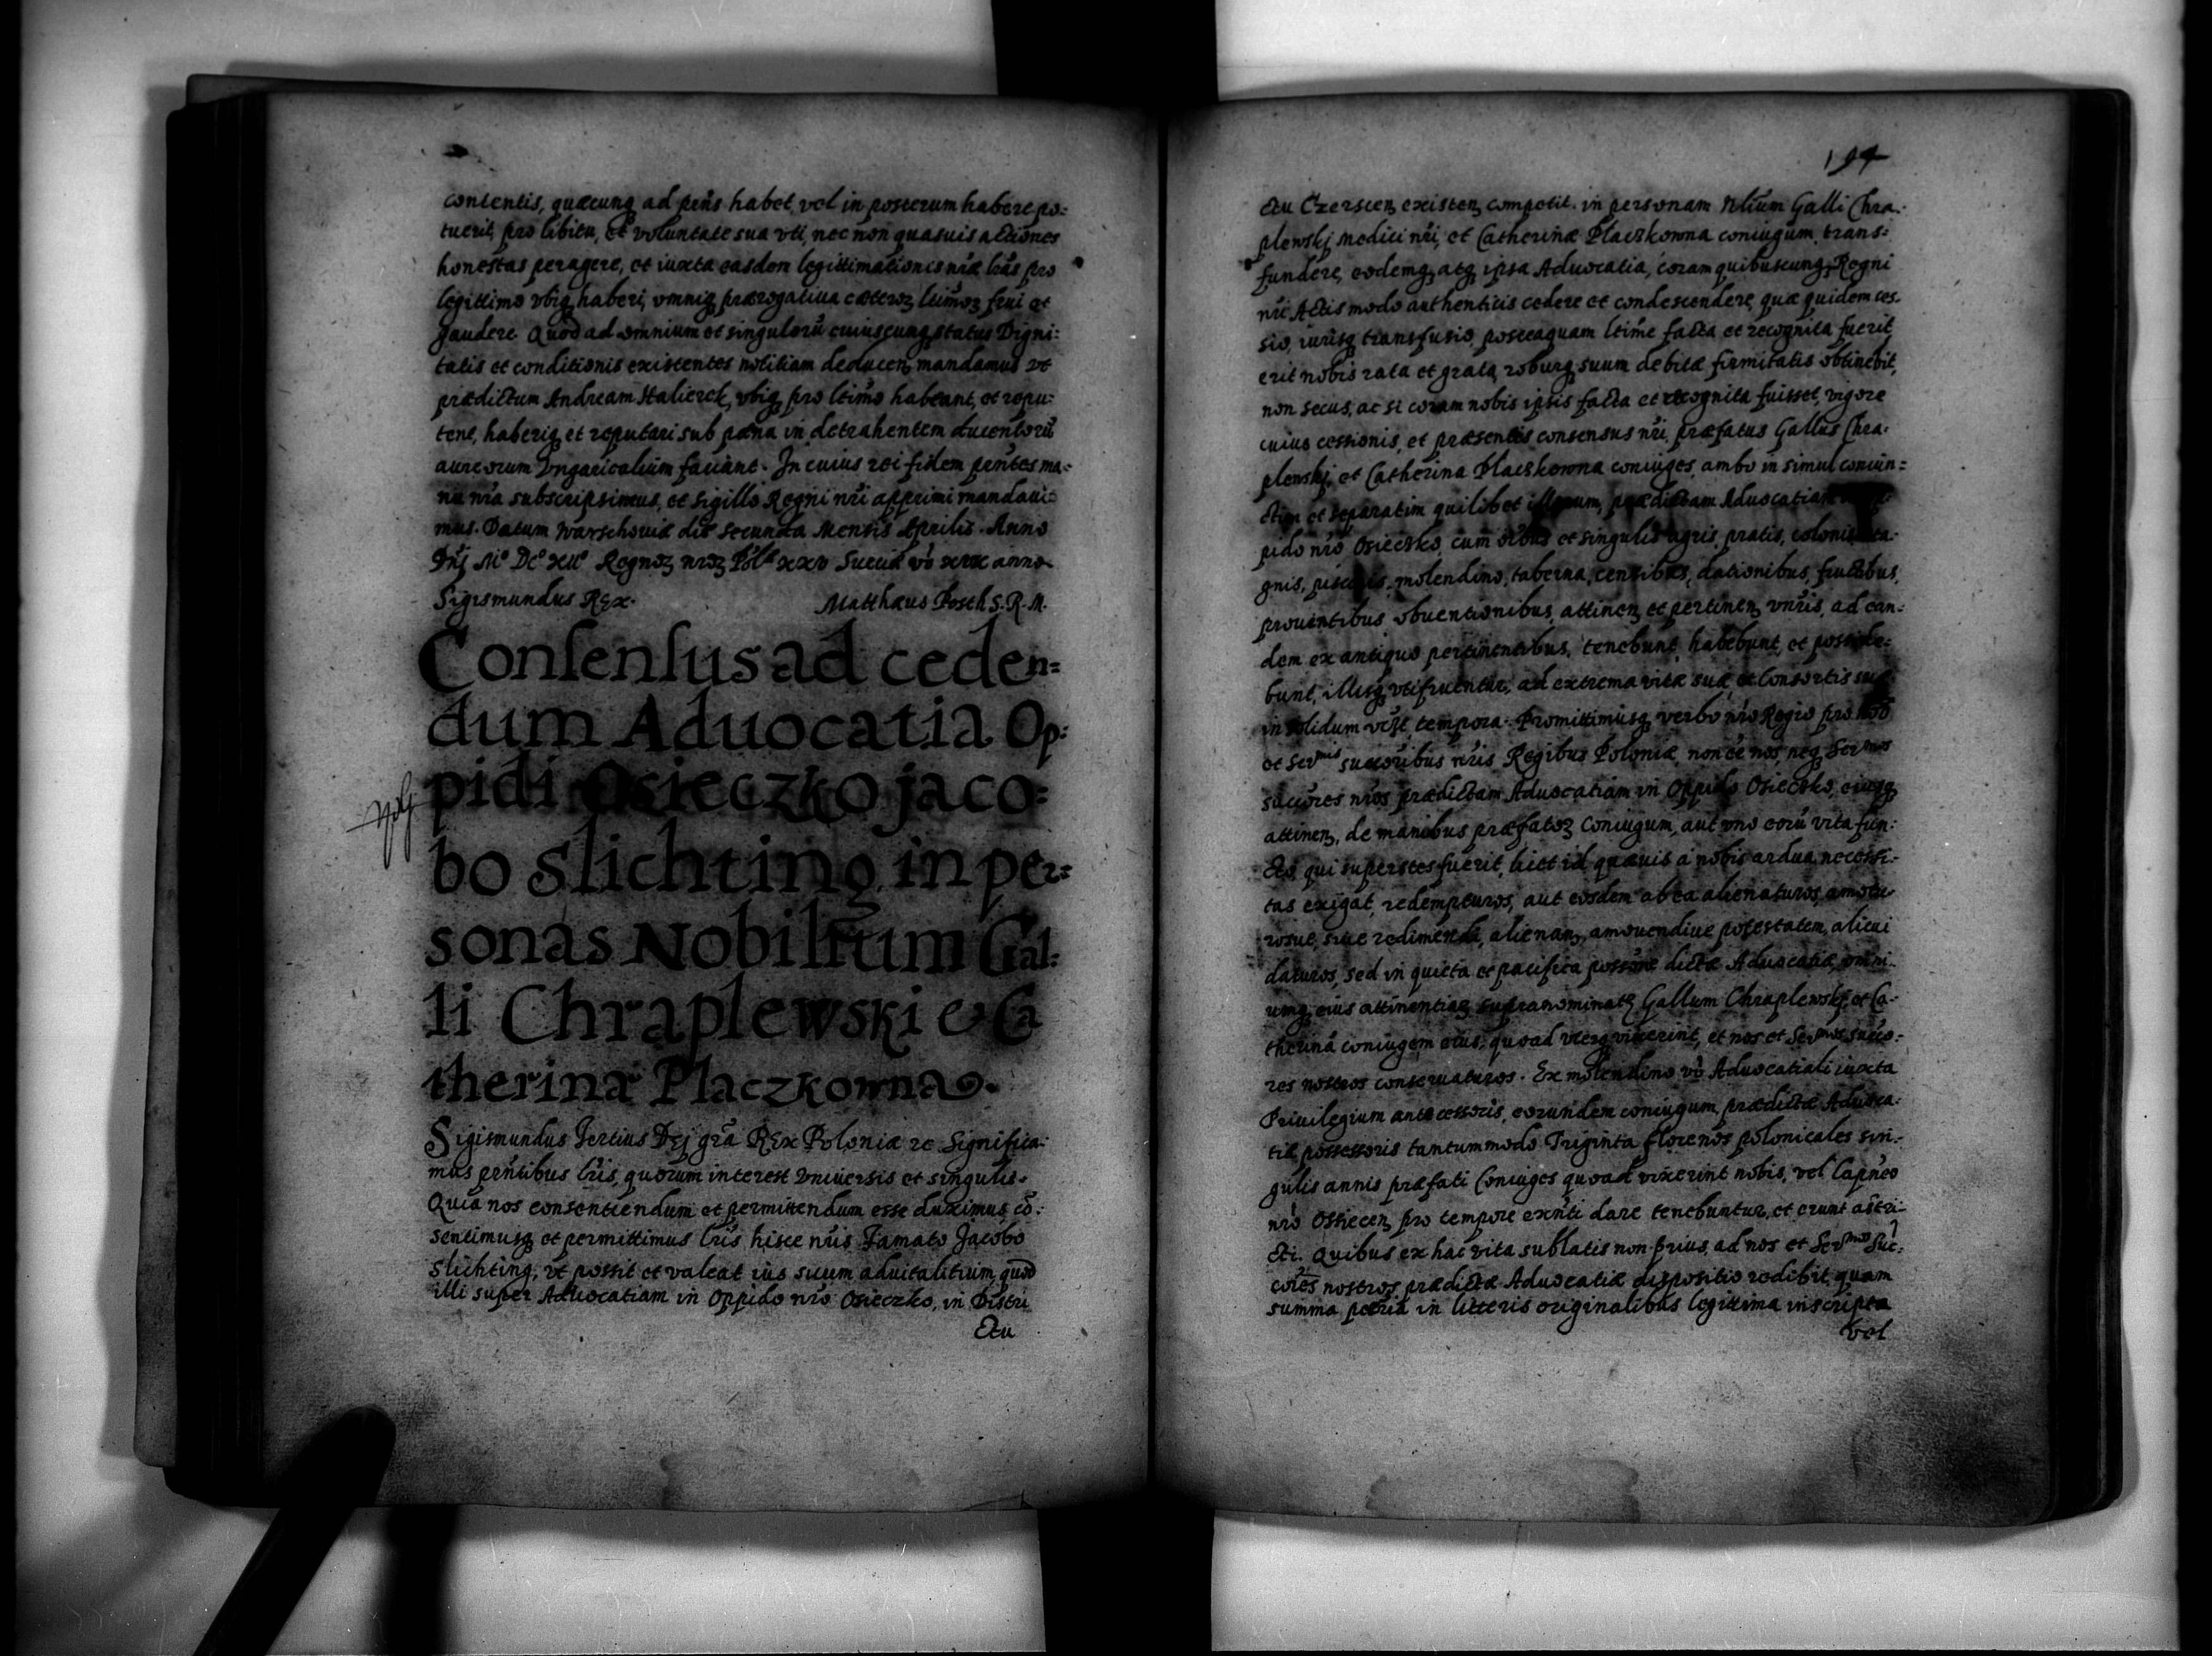 contentis, quæcunq ad pens habet, vel in posterum habere po=
tuerit, pro libitu, et voluntate sua vti, nec non quasuis actiones
honestas peragere, et iuxta easdem legittimationis nræ lras pro
legittimo vbiq haberi, omniq prærogatiua cæteroꝝ ltimoꝝ frui et
gaudere. Quod ad omnium et singuloru cuiuscunq status Digni=
tatis et conditionis existentes notitiam deducen mandamus vt
prædictum Andream Halierck, vbiq pro ltimo habeant, et repu=
tent, haberiq et reputari sub pæna in detrahentem ducentorū
aureorum Vngaricalium faciant. In cuius rei fidem pentes ma=
nu nra subscripsimus, et sigillo Regni nri apprimi mandaui=
mus. Datum Warschouiæ die secunda Mensis Aprilis. Anno
Dnj Mo Dco XIIo Regnoꝝ nroꝝ Polæ xxv Sueciæ vo xix anno
Sigismundus REx. Matthæus Posth S. R. M.
Consensus ad ceden=
dum Aduocatia Op=
pidi Osieczko jaco=
bo slichting in per=
sonas Nobilium Gal=
li Chraplewski & Ca
therinæ Placzkowna
Sigismundus Tertius Dej gra REx Poloniæ rc Significa=
mus pentibus lris, quorum interest Vniuersis et singulis.
Quia nos consentiendum et permittendum esse duximus, co=
sentimusq et permittimus lris hisce nris Famato Jacobo
Slichting, vt possit et valeat ius suum aduitalitium, quod
illi super Aduocatiam in Oppido nro Osieczko, in Distri
ctu
194
ctu Czerscen existen competit. in personam Nlium Galli Chra=
plewskj Medici nri, et Catherinæ Placzkowna coniugum, trans=
fundere, eodemq atq ipsa Aduocatia, coram quibuscunq Regni
nri Actis modo authenticis cedere et condescendere, quæ quidem ces
sio, iurisq transfusio, posteaquam ltime facta et recognita fuerit
erit nobis rata et grata, roburq suum debitæ firmitatis obtinebit,
non secus, ac si coram nobis ipsis facta et recognita fuisset, vigore
cuius cessionis, et præsentis consensus nri, præfatus Gallus Chra=
plenskj, et Catherina Placzkowna coniuges, ambo in simul coniun=
ctim et separatim quilibet illorum, prædictam Aduocatiam
pido nro Osieczko, cum oibus et singulis agris, pratis, colonis
gnis, piscinis, molendino, taberna, censibus, dationibus, fructibus,
prouentibus obuentionibus, attinen et pertinen vnris, ad ean=
dem ex antiquo pertinentibus, tenebunt, habebunt, et posside=
bunt, illisq vtifruentur, ad extrema vitæ suæ, et Consortis suæ
in solidum tempora. Promittimusq verbo nro Regio pro nob
et Sermis succoribus nris Regibus Poloniæ, non ee nos, neq Sermos
succores nros prædictam Aduocatiam in Oppido Osieczko, eiusq
attinen, de manibus præfatoꝝ Coniugum, aut vno eorū vita fun=
cto, qui superstes fuerit, licet id quæuis a nobis ardua necessi=
tas exigat, redempturos, aut eosdem ab ea alienaturos, amotu=
rosue, siue redimendi, alienan, amouendiue potestatem, alicui
daturos, sed in quieta et pacifica possone dictæ Aduocatiæ, omni
umq eius attinentiaꝝ supranominatꝝ Gallum Chraplewskj, et Ca=
therinā coniugem eius, quoad vterq vixerint, et nos et Sermos succo=
res nostros conseruaturos. Ex molendino vo Aduocatiali iuxta
Priuilegium antecessoris, eorundem coniugum, prædictæ Aduoca=
tiæ possessoris tantummodo Triginta florenos polonicales sin=
gulis annis præfati Coniuges quoad vixerint nobis, vel Capneo
nro Ossiecen pro tempore exnti dare tenebuntur, et erunt astri=
cti. Quibus ex hac vita sublatis non prius, ad nos et Sermos Suc=
cores nostros, prædictæ Aduocatiæ dispositio redibit, quam
summa petria in litteris originalibus legittima inscripta
vel